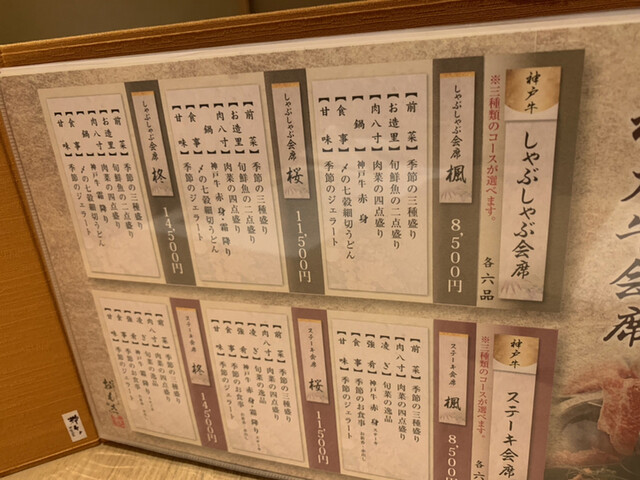 神戸牛
しゃぶしゃぶ会席
※三種類のコースが選べます。
各六品
しゃぶしゃぶ会席 楓
8,500円
【前菜】季節の三種盛り
【お造里】旬鮮魚の二点盛り
【肉八寸】肉菜の四点盛り
【鍋】神戸牛 赤身
【食事】〆の七穀細切うどん
【甘味】季節のジェラート
しゃぶしゃぶ会席 桜
11,500円
【前菜】季節の三種盛り
【お造里】旬鮮魚の二点盛り
【肉八寸】肉菜の四点盛り
【鍋】神戸牛 赤身・霜降り
【食事】〆の七穀細切うどん
【甘味】季節のジェラート
しゃぶしゃぶ会席 柊
14,500円
【前菜】季節の三種盛り
【お造里】旬鮮魚の二点盛り
【肉八寸】肉菜の四点盛り
【鍋】神戸牛 霜降り
【食事】〆の七穀細切うどん
【甘味】季節のジェラート
神戸牛
ステーキ会席
※三種類のコースが選べます。
各六
ステーキ会席 楓
8,500円
【前菜】季節の三種盛り
【肉八寸】肉菜の四点盛り
【凌ぎ】旬菜の逸品
【強肴】神戸牛 赤身 ステーキ
【食事】季節のお食事
【甘味】季節のジェラート
ステーキ会席 桜
11,500円
【前菜】季節の三種盛り
【肉八寸】旬菜の四点盛り
【凌ぎ】旬菜の逸品
【強肴】神戸牛 赤身・霜降り
【食事】季節のお食事
【甘味】季節のジェラート
ステーキ会席 柊
14,500円
【前菜】季節の三種盛り
【肉八寸】旬菜の四点盛り
【凌ぎ】旬菜の逸品
【強肴】神戸牛 霜降り
【食事】季節のお食事
【甘味】季節のジェラート
牛会席